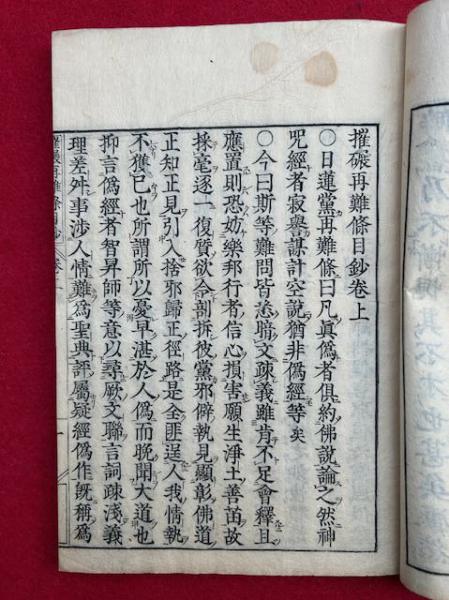 摧碾再難條目鈔卷上
○日蓮黨再難條曰凡眞僞者俱約佛說論之然神
咒經者寂擧謀計空說猶非僞經等矣
○今曰斯等難問皆恣暗文疎義雖肯不足會釋且
應置則恐妨樂邦行者信心損害願生淨土善苗故
採毫逐一復質欲令剖拆彼黨邪僻執見顯彰佛道
正知正見引入捨邪歸正徑路是全匪逞人我情執
不獲已也所謂所以憂早湛於人僞而晚聞大道也
抑言僞經者智昇師等意以尋厥文聯言詞疎淺義
理差舛事涉人情難爲聖典評屬疑經僞作旣稱爲
摧碾再難條目鈔